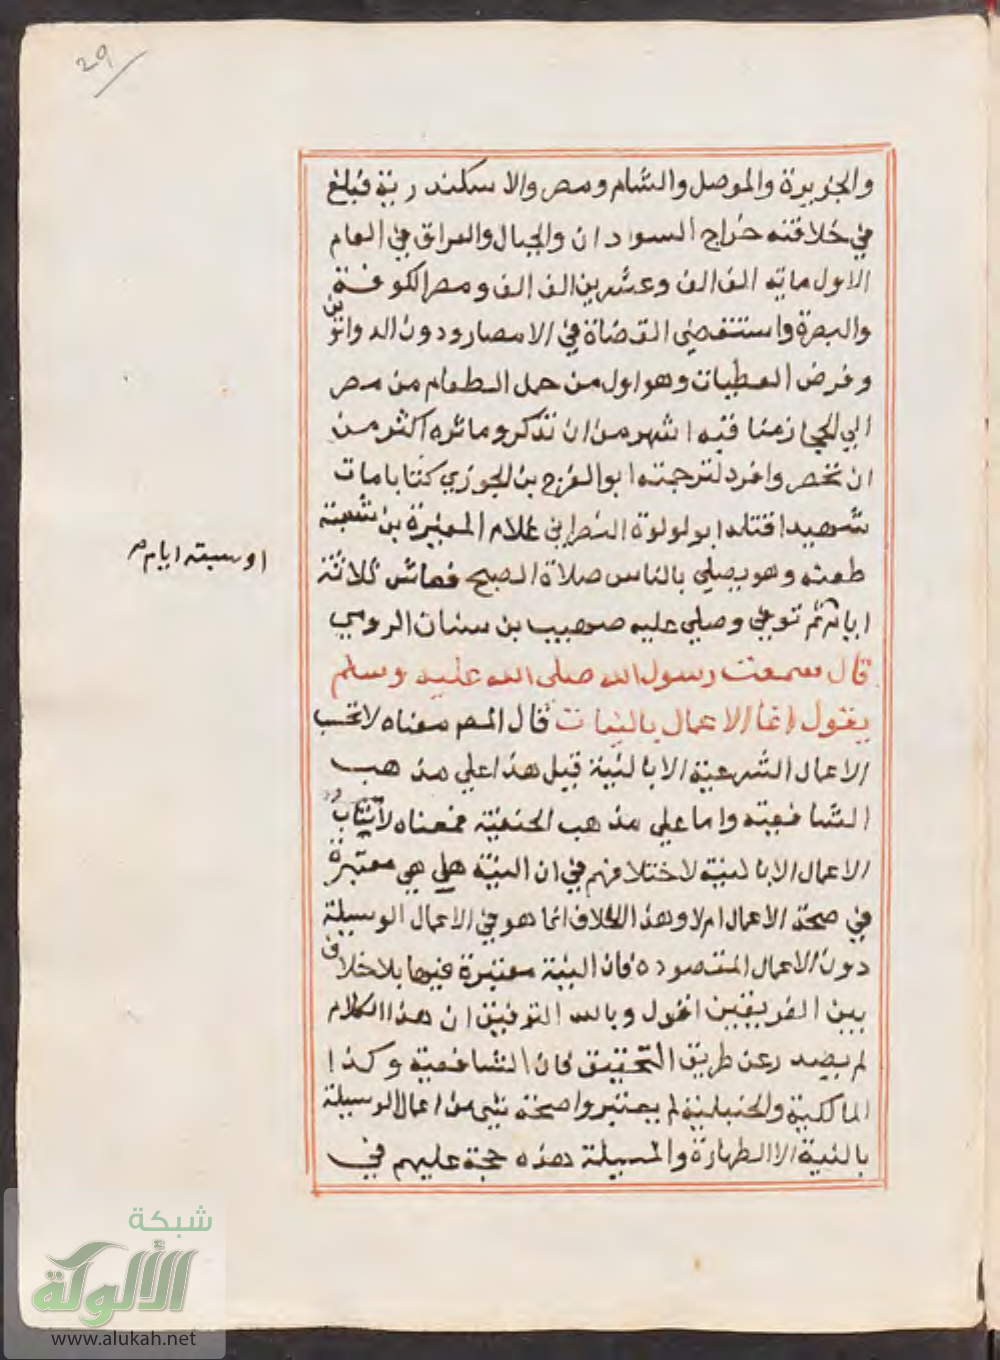 29
والجزيرة والموصل والشام ومصر والاسكندرية فبلغ
في خلافته خراج السوادان والجبال والعراق في العام
الاول ماية الف الف وعشرين الف الف ومصر الكوفة
والبصرة واستقضي القضاة في الامصار ودون الدواوين
وفرض العطيات وهو اول من حمل الطعام من مصر
الي الحجاز مناقبه اشهر من ان تذكر وماثره اكثر من
ان تحصر وافرد لترجمته ابو الفرج بن الجوزي كتابا مات
شهيدا قتله ابو لولوة النصراني غلام المغيرة بن شعبة
طعنه وهو يصلي بالناس صلاة الصبح فعاش ثلاثة
ايام ثم توفي وصلي عليه صهيب بن سنان الرومي
قال سمعت رسول الله صلى الله عليه وسلم
يقول انما الاعمال بالنيات قال المصر معناه لا تحسب
الاعمال الشرعية الا بالنية قيل هذا علي مذهب
الشافعية واما علي مذهب الحنفية فمعناه لا تثاب
الاعمال الا بالنية لاختلافهم في ان النية هل هي معتبرة
في صحة الاعمال ام لا وهذا الخلاف انما هو في الاعمال الوسيلة
دون الاعمال المقصوده فان النية معتبرة فيها بلا خلاف
بين الفريقين اقول وبالله التوفيق ان هذا الكلام
لم يصدر عن طريق التحقيق فان الشافعية وكذا
المالكية والحنبلية لم يعتبروا صحة شي من اعمال الوسيلة
بالنية الا الطهارة والمسيلة هذه حجة عليهم في
او سبعة ايام صـ
شبكة
الألوكة
www.alukah.net